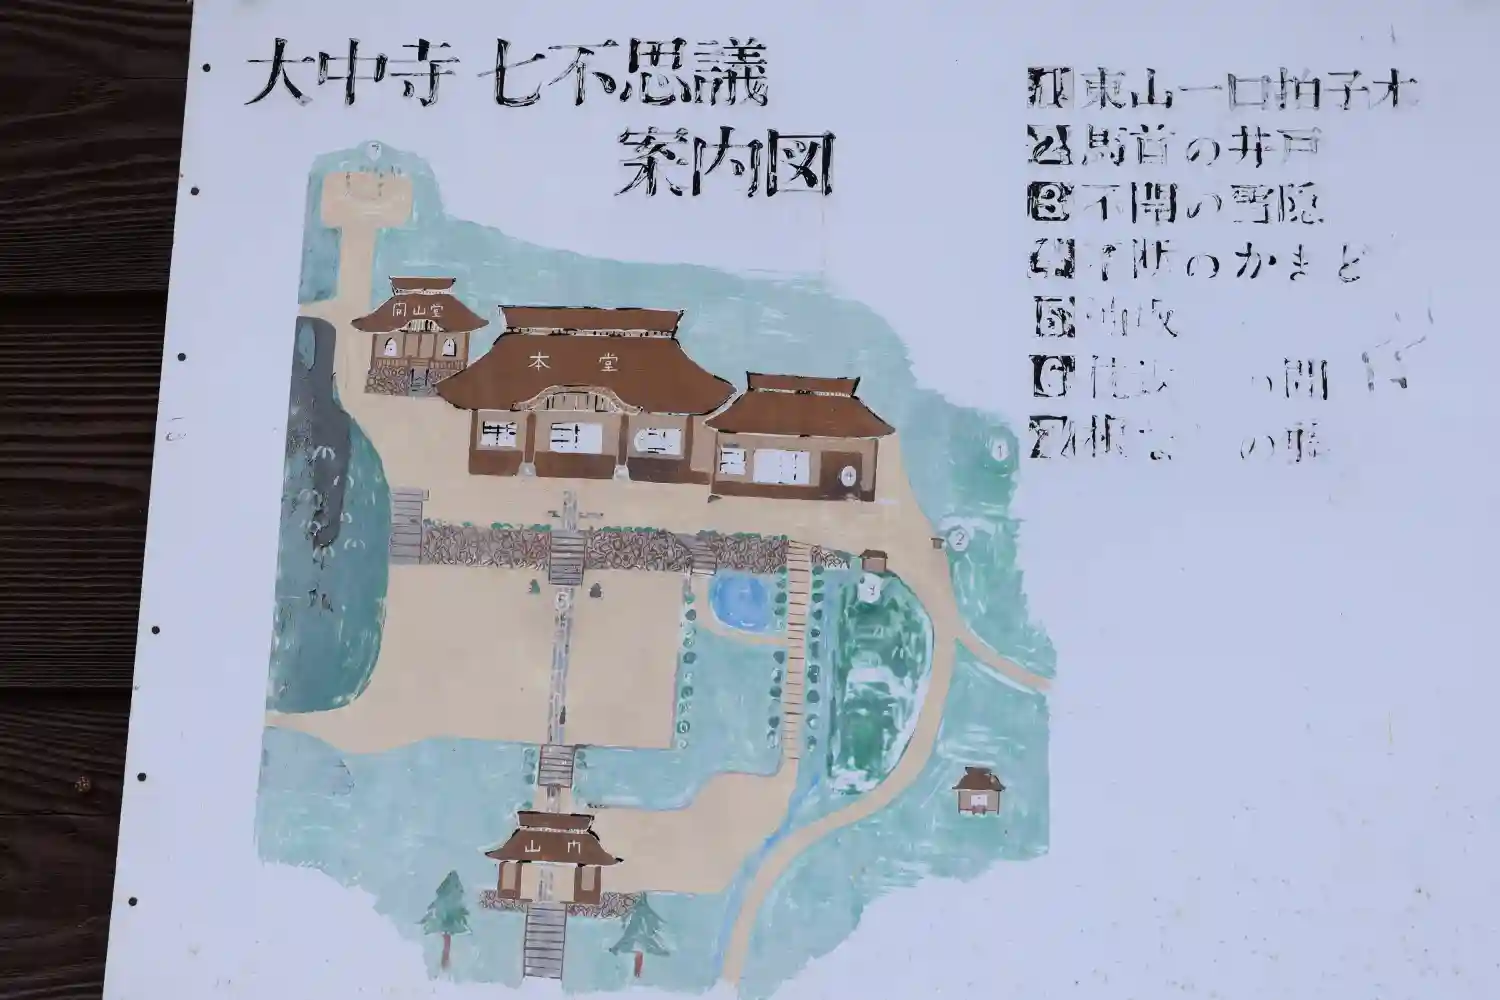 大中寺 七不思議
案内図
1 東山一口拍子木
2 馬首の井戸
3 不開の雪隠
4 不断のかまど
5 油坂
6 の間
7 根な の藤
7
開山堂
本堂
4
1
2
3
5
山門